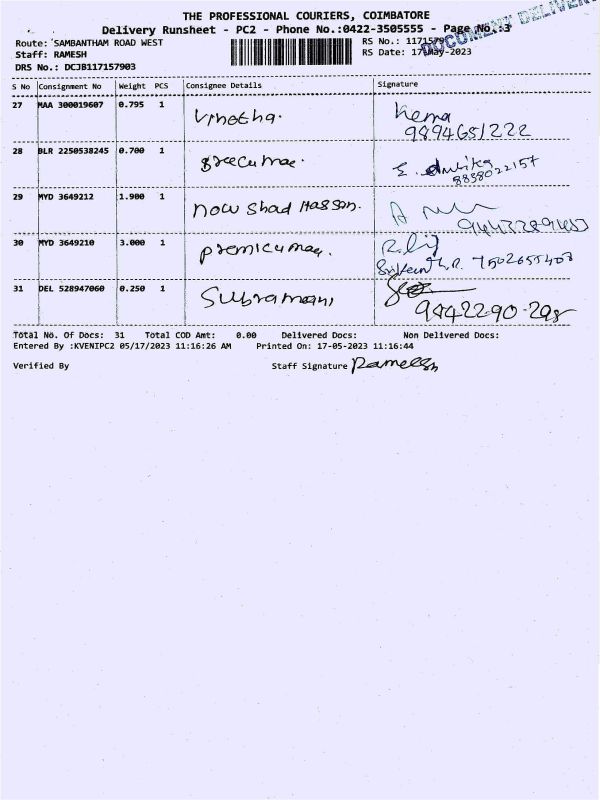 THE PROFESSIONAL COURIERS, COIMBATORE
Delivery Runsheet - PC2 - Phone No.:0422-3505555 - Page No.:3
DOCUMENT DELIVER
Route: SAMBANTHAM ROAD WEST RS No.: 11715790
Staff: RAMESH RS Date: 17-May-2023
DRS No.: DCJB117157903
S No Consignment No Weight PCS Consignee Details Signature
27 MAA 300019607 0.795 1 Vinotha. Hema
9894651222
28 BLR 2250538245 0.700 1 Sreecumae. E.
8838022157
29 MYD 3649212 1.900 1 now shad Hasson.
30 MYD 3649210 3.000 1 premicumae.
7502655408
31 DEL 528947060 0.250 1 Subramani
9842290-298
Total No. Of Docs: 31 Total COD Amt: 0.00 Delivered Docs: Non Delivered Docs:
Entered By :KVENIPC2 05/17/2023 11:16:26 AM Printed On: 17-05-2023 11:16:44
Verified By Staff Signature Ramesh